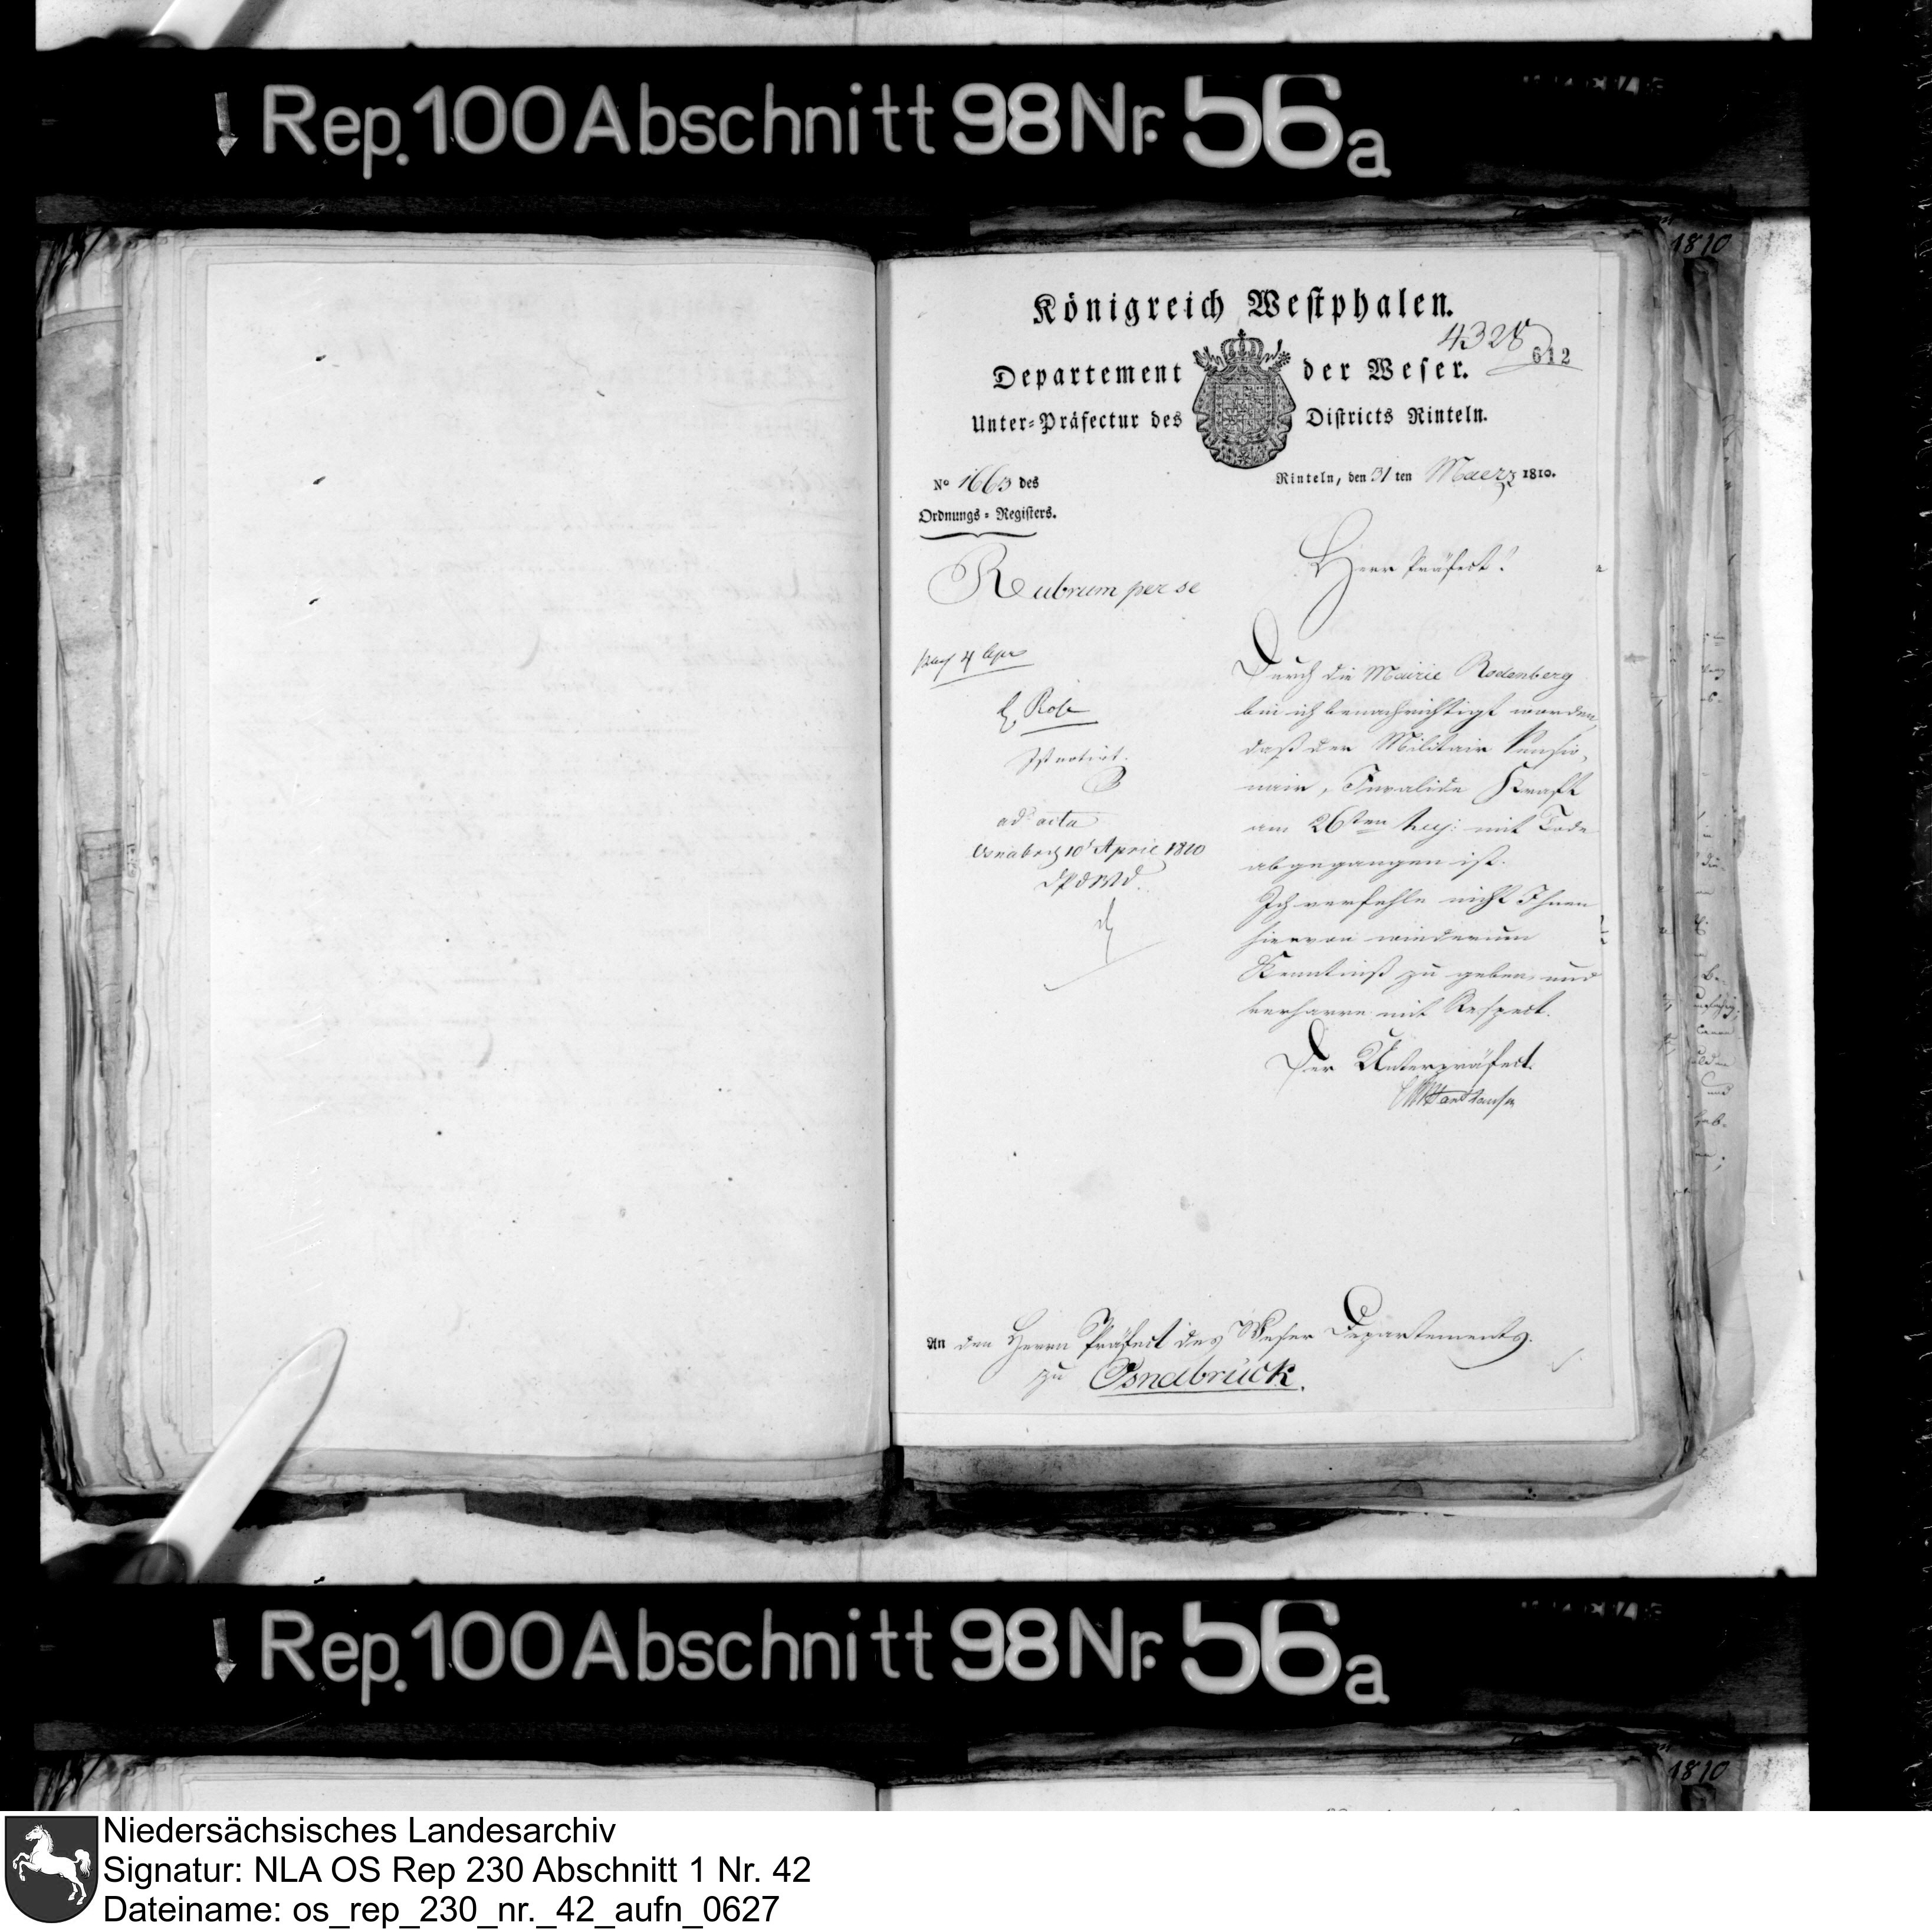 Rep. 100 Abschnitt 98 Nr. 56a
1810
Königreich Westphalen.
4328
612
Departement der Weser.
Unter-Präfectur des Districts Rinteln.
No 1663 des
Ordnungs-Registers.
Rinteln, den 31 ten Maerz 1810.
Rubrum per se
Herr Präfect!
Durch die Mairie Rodenberg
bin ich benachrichtigt worden,
daß der Militair Pensio-
nair, Invalide Kraft
am 26sten huj: mit Tode
abgegangen ist.
Ich verfehle nicht Ihnen
hiervon wiederum
Kenntniß zu geben, und
verharre mit Respect.
Der Unterpräfect.
4 Apr
Ist notirt.
ad acta
Osnabrck 10t April 1810
DPdWD.
An den Herrn Präfect des Weser Departements.
zu Osnabrück.
Rep. 100 Abschnitt 98 Nr. 56a
1810
Niedersächsisches Landesarchiv
Signatur: NLA OS Rep 230 Abschnitt 1 Nr. 42
Dateiname: os_rep_230_nr._42_aufn_0627